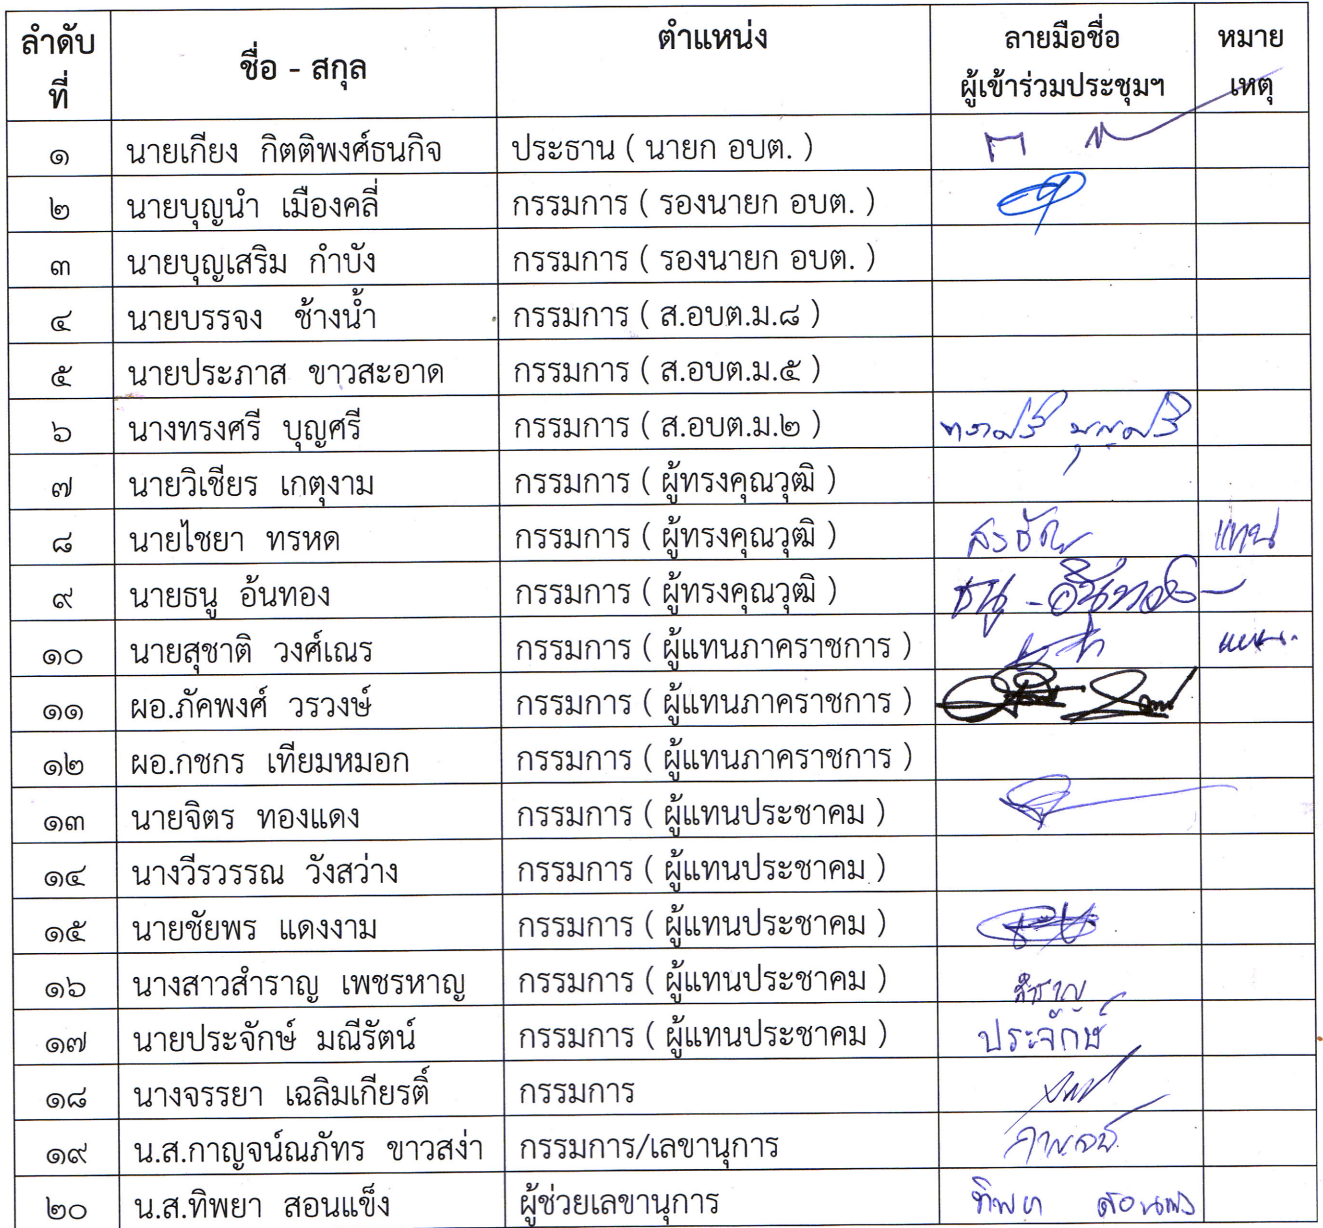 ลำดับที่ ชื่อ - สกุล ตำแหน่ง ลายมือชื่อผู้เข้าร่วมประชุมฯ หมายเหตุ
๑ นายเกียง กิตติพงศ์ธนกิจ ประธาน ( นายก อบต. )
๒ นายบุญนำ เมืองคลี่ กรรมการ ( รองนายก อบต. )
๓ นายบุญเสริม กำบัง กรรมการ ( รองนายก อบต. )
๔ นายบรรจง ช้างน้ำ กรรมการ ( ส.อบต.ม.๘ )
๕ นายประภาส ขาวสะอาด กรรมการ ( ส.อบต.ม.๕ )
๖ นางทรงศรี บุญศรี กรรมการ ( ส.อบต.ม.๒ ) ทรงศรี บุญศรี
๗ นายวิเชียร เกตุงาม กรรมการ ( ผู้ทรงคุณวุฒิ )
๘ นายไชยา ทรหด กรรมการ ( ผู้ทรงคุณวุฒิ ) แทน
๙ นายธนู อ้นทอง กรรมการ ( ผู้ทรงคุณวุฒิ ) ธนู - อ้นทอง
๑๐ นายสุชาติ วงศ์เณร กรรมการ ( ผู้แทนภาคราชการ ) แทน
๑๑ ผอ.ภัคพงศ์ วรวงษ์ กรรมการ ( ผู้แทนภาคราชการ )
๑๒ ผอ.กชกร เทียมหมอก กรรมการ ( ผู้แทนภาคราชการ )
๑๓ นายจิตร ทองแดง กรรมการ ( ผู้แทนประชาคม )
๑๔ นางวีรวรรณ วังสว่าง กรรมการ ( ผู้แทนประชาคม )
๑๕ นายชัยพร แดงงาม กรรมการ ( ผู้แทนประชาคม )
๑๖ นางสาวสำราญ เพชรหาญ กรรมการ ( ผู้แทนประชาคม ) สำราญ
๑๗ นายประจักษ์ มณีรัตน์ กรรมการ ( ผู้แทนประชาคม ) ประจักษ์
๑๘ นางจรรยา เฉลิมเกียรติ์ กรรมการ
๑๙ น.ส.กาญจน์ณภัทร ขาวสง่า กรรมการ/เลขานุการ
๒๐ น.ส.ทิพยา สอนแข็ง ผู้ช่วยเลขานุการ